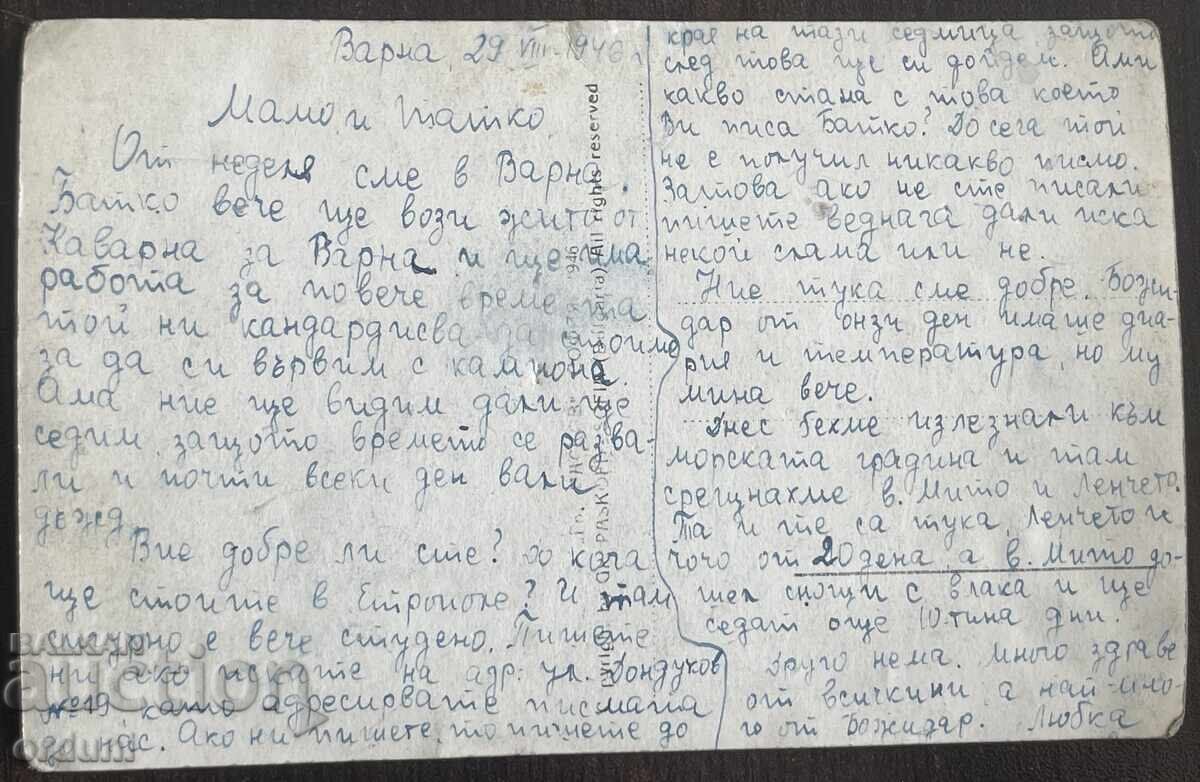 Варна, 29 VIII. 1946 г
Мамо и Татко,
От неделя сме в Варна.
Батко вече ще вози жито от
Каварна за Варна и ще има
работа за повече време та
той ни кандардисва да стоим
за да си вървим с камиона.
Ама ние ще видим дали ще
седим, защото времето се разва-
ли и почти всеки ден вали
дъжд.
Вие добре ли сте? До кога
ще стоите в Етрополе? И там
сигурно е вече студено. Пишете
ни ако искате на адр: ул. Дондуков
№ 19 като адресирвате писмата
до нас. Ако ни пишете, то пишете до
края на тази седмица защото
след това ще си дойдем. Ами
какво стана с това което
Ви писа Батко? До сега той
не е получил никакво писмо.
Затова ако не сте писали
пишете веднага дали иска
некой слама или не.
Ние тука сме добре. Божи-
дар от онзи ден имаше диа-
рия и температура, но му
мина вече.
Днес бехме излезнали към
морската градина и там
срещнахме в. Мито и Ленчето.
Та и те са тука, Ленчето и
Чочо от 20 дена, а в. Мито до-
шел снощи с влака и ще
седят още 10тина дни.
Друго нема. Много здраве
от всички ни, а най-мно-
го от Божидар. Любка
(Bulgaria) All rights reserved
PASKOFF
auction
ordum